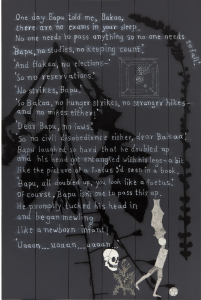 One day Bapu told me, Bakaa,
there are no exams in your sleep
No one needs to pass anything so no one needs
to fail!
'Bapu, no studies, no keeping count.'
'And Bakaa, no elections-'
'So no reservations.'
'No strikes, Bapu.'
'So Bakaa, no hunger strikes, no stranger hikes-
and no mikes either!'
'Dear Bapu, no laws.'
'So no civil disobedience either, dear Bakaa.'
Bapu laughed so hard that he doubled up
and his head got entangled with his legs-a bit
like the picture of a foetus I'd seen in a book.
'Bapu, all doubled up, you look like a foetus.'
Of course, Bapu isn't one to pass this up.
He promptly tucked his head in
and began mewling
like a newborn infant,
'Uaaan...uaaan...uaaan